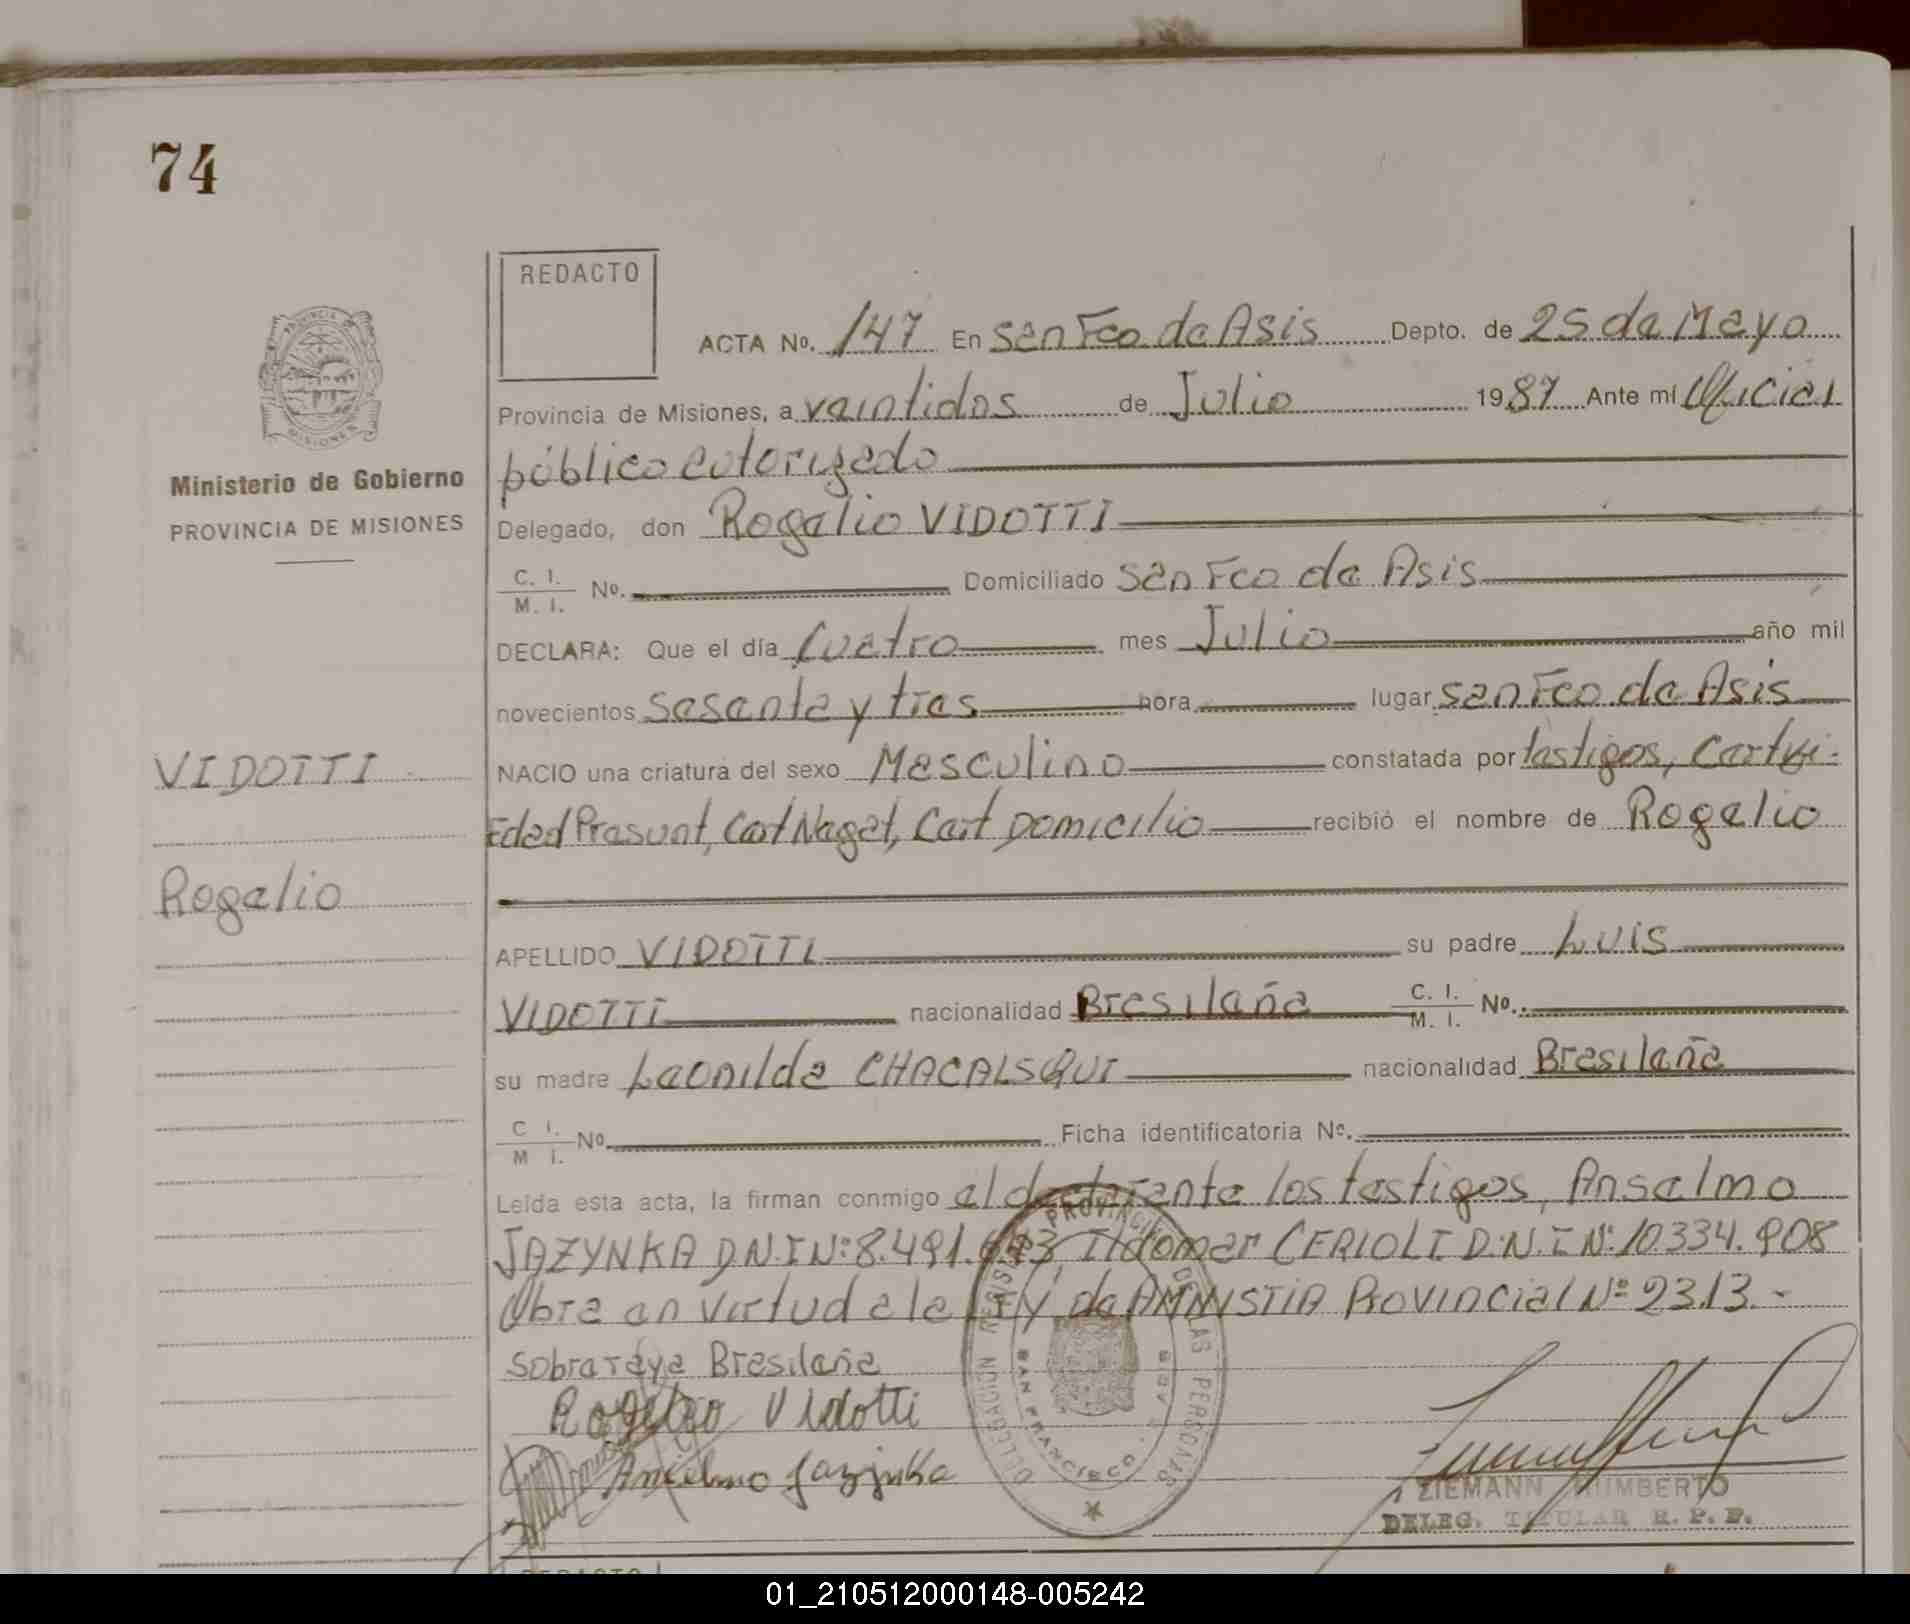 74
REDACTO
ACTA No. 147 En San Fco de Asis Depto. de 25 de Mayo
Provincia de Misiones, a veintidos de Julio 1987 Ante mi Oficial
público autorizado
Ministerio de Gobierno
PROVINCIA DE MISIONES
Delegado, don Rogelio VIDOTTI
C. I. M. I. No. Domiciliado San Fco de Asis
DECLARA: Que el día Cuatro mes Julio año mil
novecientos sesenta y tres hora lugar San Fco. de Asis
VIDOTTI
NACIO una criatura del sexo Masculino constatada por testigos,
Edad Presunt, Cert Negat, Cert Domicilio recibió el nombre de Rogelio
Rogelio
APELLIDO VIDOTTI su padre Luis
VIDOTTI nacionalidad Bresileña C. I. M. I. No.
su madre Leonilda CHACALSQUI nacionalidad Bresileña
C I. M I. No Ficha identificatoria No.
Leída esta acta, la firman conmigo el declarante los testigos, Anselmo
JAZYNKA D.N.I Nº 8.491. Ildomar CERIOLI D.N.I Nº 10.334.908
Obra en virtud a la LEY de AMNISTIA Provincial Nº 2313.-
sobreraya Bresileña
Rogelio Vidotti
Anselmo Jazynka
ZIEMANN HUMBERTO
DELEG. TITULAR R. P. P.
DELEGACION REGISTRO PROVINCIAL DE LAS PERSONAS
SAN FRANCISCO DE ASIS
PROVINCIA DE MISIONES
REDACTO
01_210512000148-005242